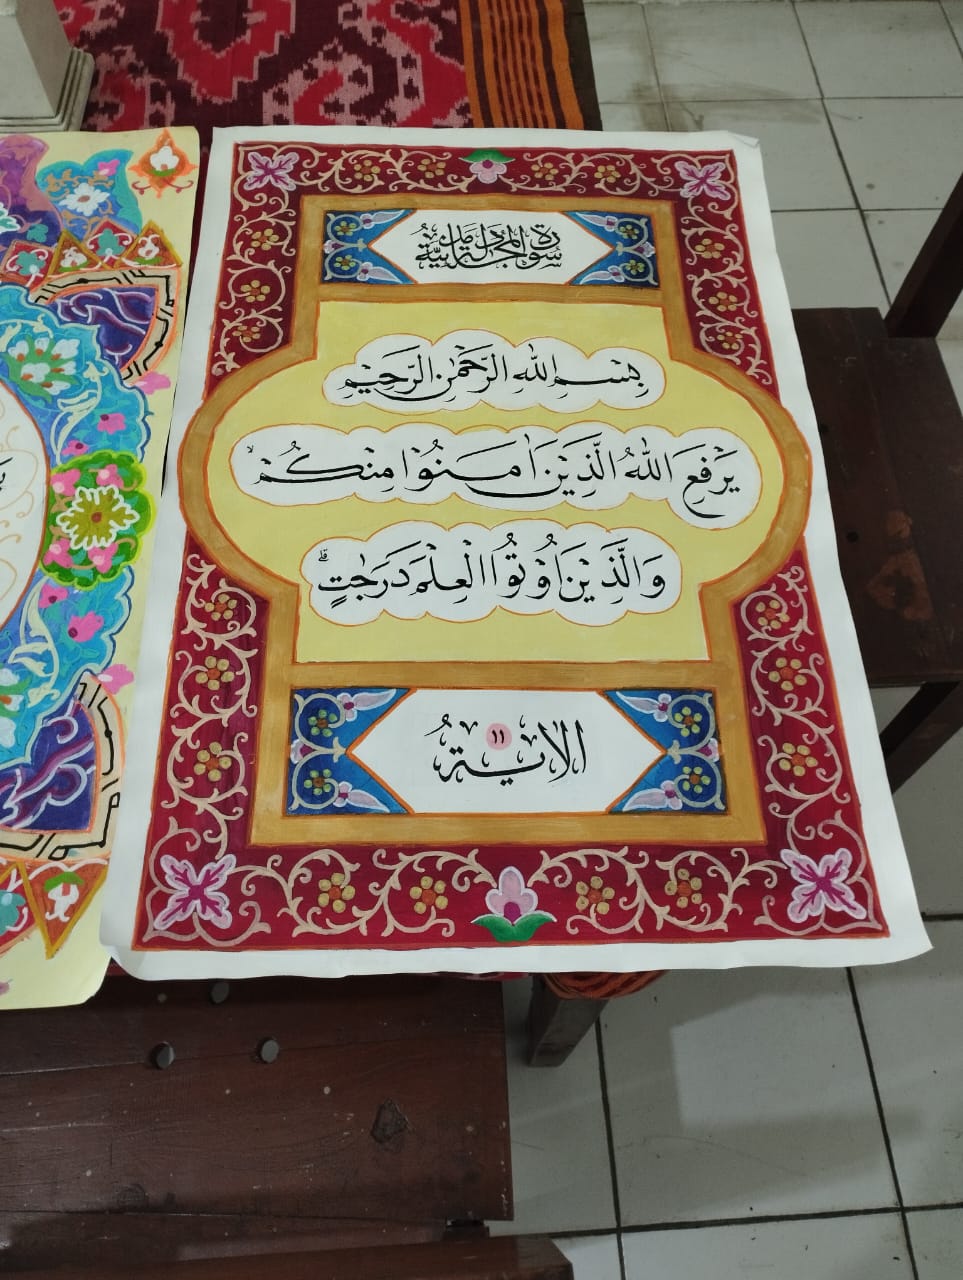 سورة المجادلة مدنية
بِسْمِ اللهِ الرَّحْمٰنِ الرَّحِيْمِ
يَرْفَعِ اللهُ الَّذِيْنَ اٰمَنُوْا مِنْكُمْ ۙ
وَالَّذِيْنَ اُوْتُوا الْعِلْمَ دَرَجٰتٍ ۗ
الاية ١١